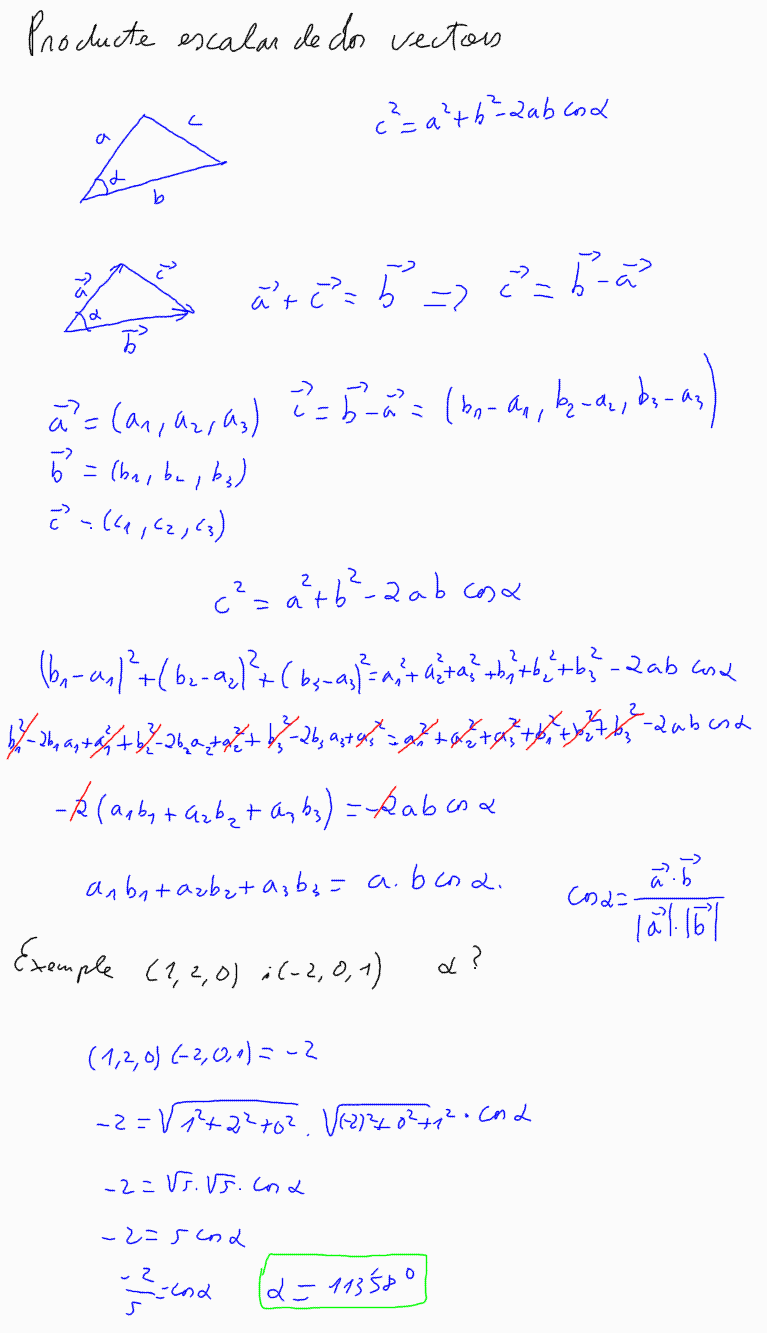 Producte escalar de dos vectors
a c α b
c² = a² + b² - 2ab cos α
a⃗ c⃗ α b⃗
a⃗ + c⃗ = b⃗ => c⃗ = b⃗ - a⃗
a⃗ = (a₁, a₂, a₃) c⃗ = b⃗ - a⃗ = (b₁ - a₁, b₂ - a₂, b₃ - a₃)
b⃗ = (b₁, b₂, b₃)
c⃗ = (c₁, c₂, c₃)
c² = a² + b² - 2ab cos α
(b₁ - a₁)² + (b₂ - a₂)² + (b₃ - a₃)² = a₁² + a₂² + a₃² + b₁² + b₂² + b₃² - 2ab cos α
b₁² - 2b₁a₁ + a₁² + b₂² - 2b₂a₂ + a₂² + b₃² - 2b₃a₃ + a₃² = a₁² + a₂² + a₃² + b₁² + b₂² + b₃² - 2ab cos α
-2(a₁b₁ + a₂b₂ + a₃b₃) = -2ab cos α
a₁b₁ + a₂b₂ + a₃b₃ = a·b cos α. cos α = a⃗·b⃗ / |a⃗|·|b⃗|
Exemple (1, 2, 0) i (-2, 0, 1) α?
(1,2,0)(-2,0,1) = -2
-2 = √(1² + 2² + 0²) · √((-2)² + 0² + 1²) · cos α
-2 = √5 · √5 · cos α
-2 = 5 cos α
-2/5 = cos α α = 113'58°